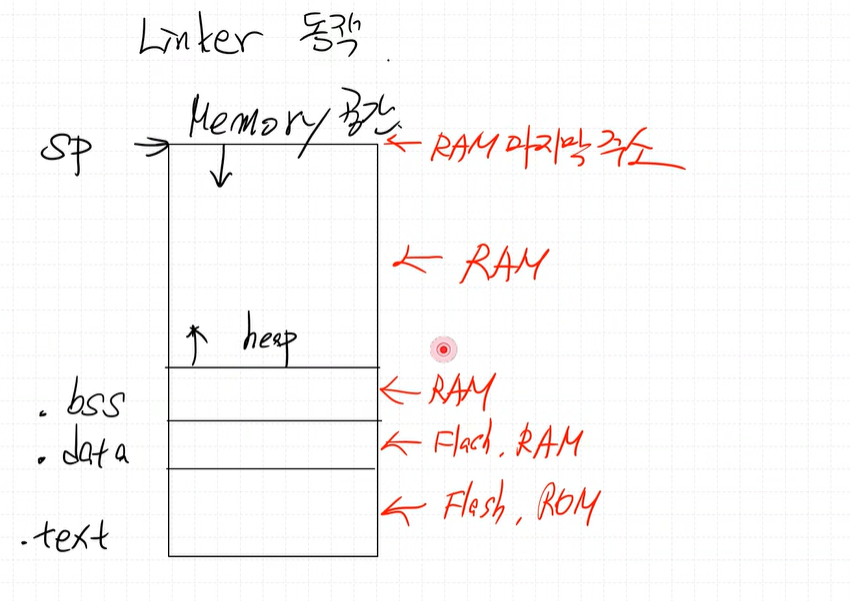 Linker 동작.
Memory 공간
SP
RAM 마지막 주소
RAM
heap
.bss
RAM
.data
Flach, RAM
Flash, ROM
.text